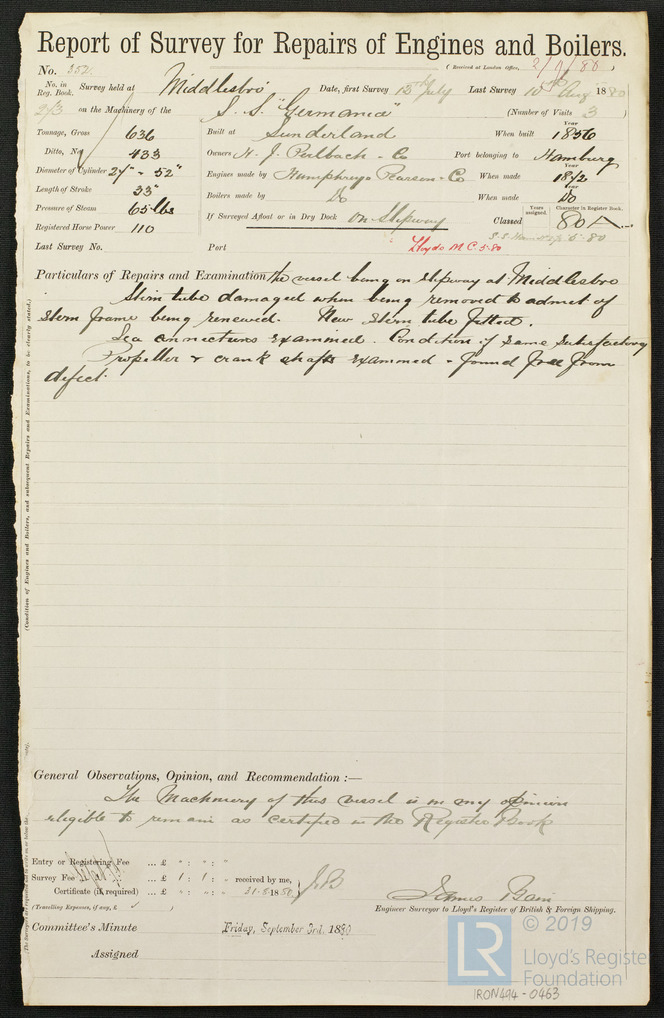 Report of Survey for Repairs of Engines and Boilers.
No. 352. (Received at London Office, 2/9/80)
No. in Reg. Book. Survey held at Middlesbro Date, first Survey 13th July Last Survey 10th Aug 1880
213 on the Machinery of the S.S. "Germania" (Number of Visits 3)
Tonnage, Gross 636 Built at Sunderland When built Year 1856
Ditto, Net 433 Owners H. J. Perlbach & Co Port belonging to Hamburg
Diameter of Cylinder 27" - 52" Engines made by Humphrys Pearson & Co When made Year 1872
Length of Stroke 33" Boilers made by Do When made Year Do
Pressure of Steam 65 lbs If Surveyed Afloat or in Dry Dock On Slipway Classed Years assigned. Character in Register Book. 80 A
Registered Horse Power 110
Last Survey No. Port Lloyds M C 5.80
Particulars of Repairs and Examination the vessel being on slipway at Middlesbro
Stern tube damaged when being removed to admit of
stern frame being renewed. New stern tube fitted.
Sea connections examined. Condition of same satisfactory
Propeller & crank shafts examined & found free from
defect.
(Condition of Engines and Boilers, and subsequent Repairs and Examinations, to be clearly stated.)
General Observations, Opinion, and Recommendation :—
The Machinery of this vessel is in my opinion
eligible to remain as certified in the Register Book
Entry or Registering Fee ... £ " : " : "
Survey Fee ... £ 1 : 1 : " received by me, J.B
Certificate (if required) ... £ " : " : " 31-8-1880
(Travelling Expenses, if any, £ )
James Bain
Engineer Surveyor to Lloyd's Register of British & Foreign Shipping.
Committee's Minute Friday, September 3rd, 1880
Assigned
© 2019
LR
Lloyd's Registe
Foundation
IRON494-0463